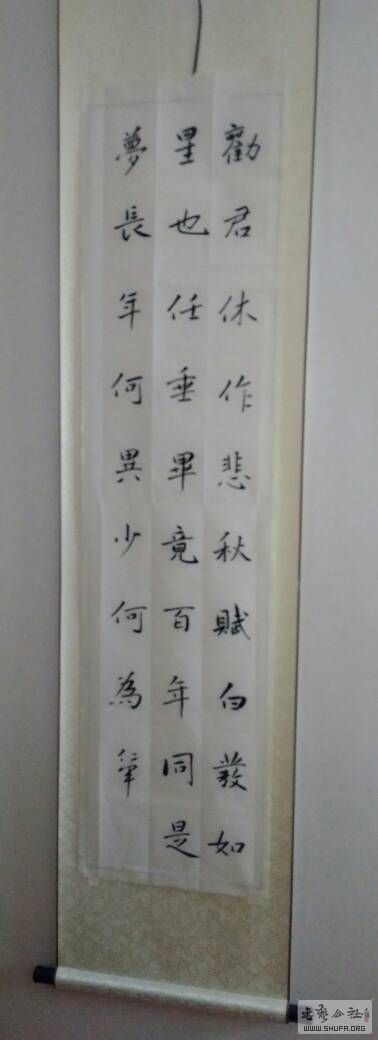 勸君休作悲秋賦白發如
星也任垂畢竟百年同是
夢長年何異少何為筆
WWW.SHUFA.ORG